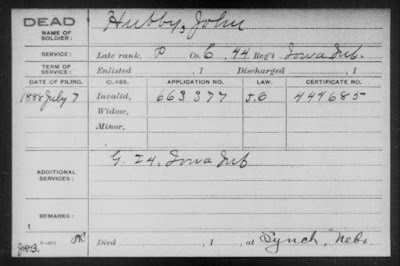 DEAD Hubby, John
NAME OF SOLDIER:
SERVICE: Late rank, P Co. C, 44 Reg't Iowa Inf.
TERM OF SERVICE: Enlisted , 1 Discharged , 1
DATE OF FILING. CLASS. APPLICATION NO. LAW. CERTIFICATE NO.
1888 July 7 Invalid, 663377 444685
Widow,
Minor,
ADDITIONAL SERVICES: G. 24. Iowa Inf
REMARKS:
Died , 1 , at Lynch, Nebr.